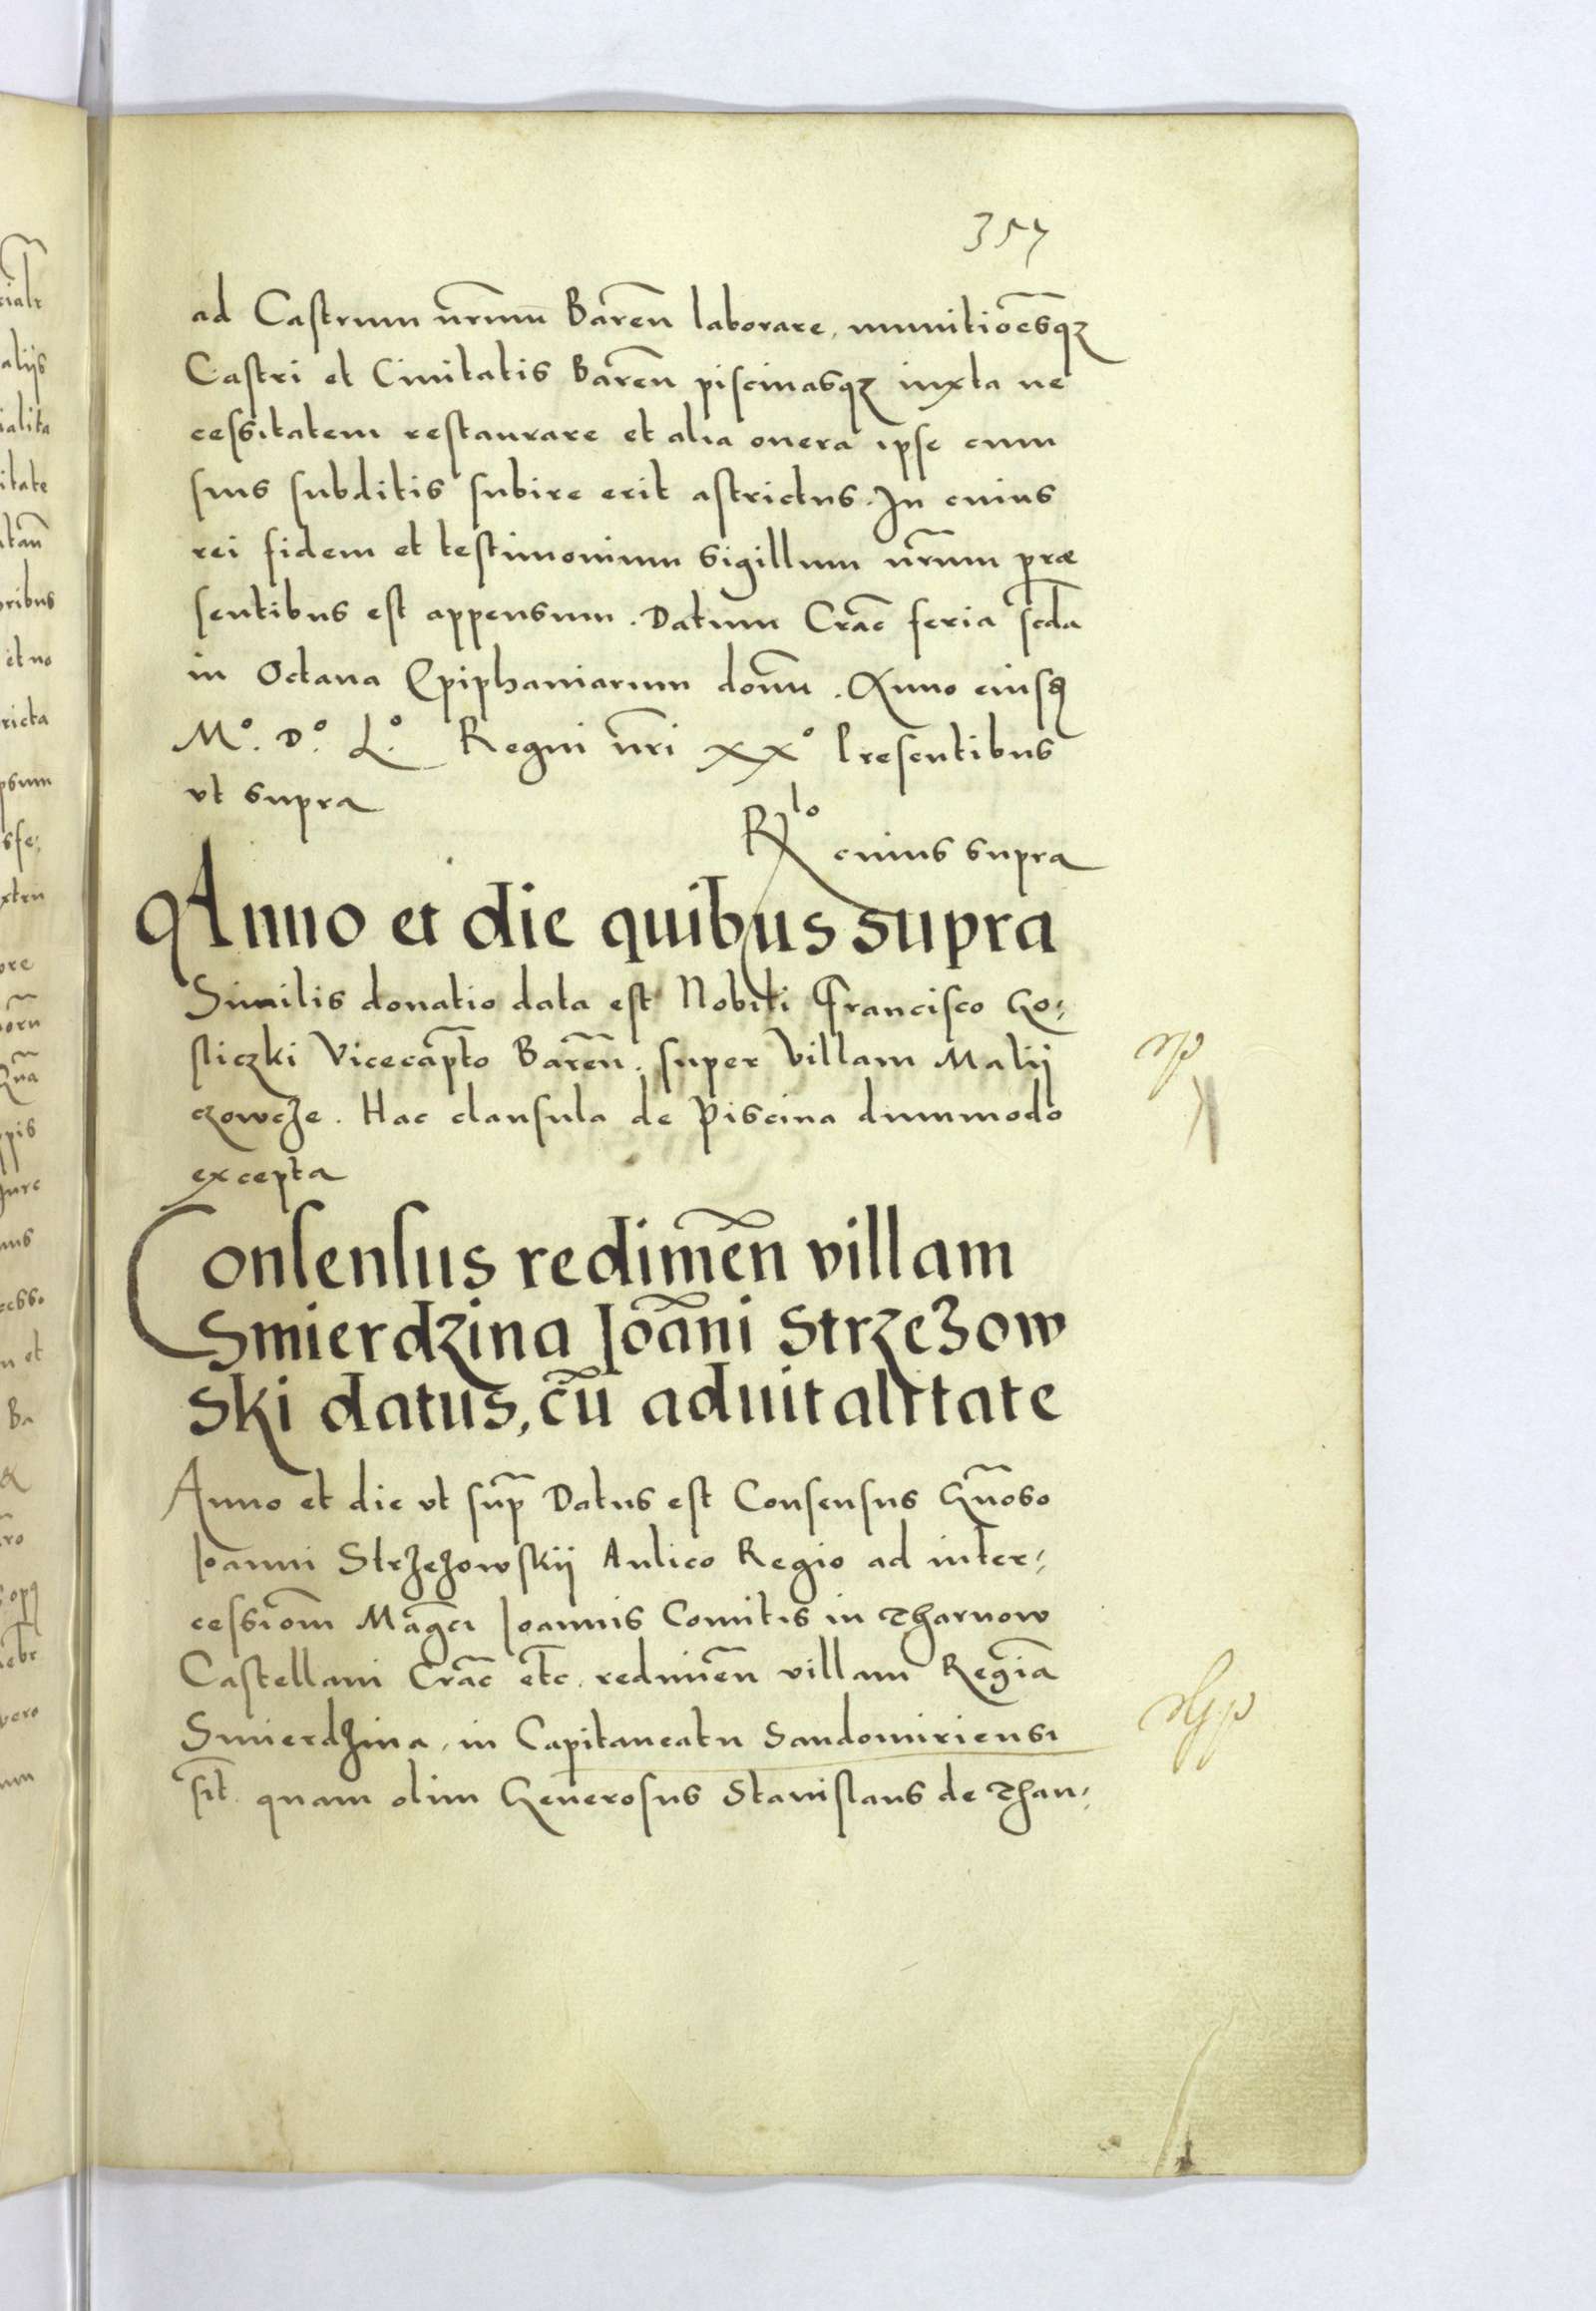 357
ad Castrum nr̃mũ Baren̄ laborare, munitiõesqz
Castri et Ciuitatis Baren̄ piscinasqz iuxta ne
cessitatem restaurare et alia onera ipse cum
suis subditis subire erit astrictus. In cuius
rei fidem et testimonium sigillum nr̃um præ
sentibus est appensum. Datum Crac̄ feria scd̃a
in Octaua Epiphaniarum domĩ. Anno eiusq
M.º D.º L.º Regni nr̃i xxº Presentibus
vt supra
Rlo cuius supra
Anno et die quibus supra
Similis donatio data est Nobili Francisco Go-
sliczki Vicecap̃to Baren̄. super Villam Malij
czowcze. Hac clausula de Piscina dummodo
excepta
Consensus redimen̄ villam
Smierdzina Joãni Strzezow
ski datus, cũ aduitalitate
Anno et die vt sup̃ Datus est Consensus Gñoso
Joanni Strzezowskij Aulico Regio ad inter-
cessiom̃ Mag̃ci Joannis Comitis in Tharnow
Castellani Crac̄ etc̄. redimen̄ villam Regiã
Smierdzina, in Capitaneatu Sandomiriensi
sit̃. quam olim Generosus Stanislaus de Than-